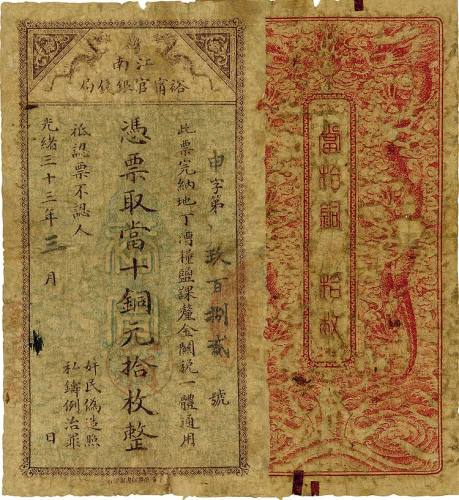 江南
裕甯官銀錢局
申字第玖百捌貳號
此票完納地丁漕糧鹽課釐金關稅一體通用
憑票取當十銅元拾枚整
祇認票不認人
奸民偽造照
私鑄例治罪
光緒三十三年三月 日
當拾銅 拾枚